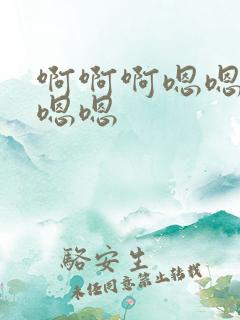 啊啊啊嗯嗯
嗯嗯
駱安生
未经同意禁止转载